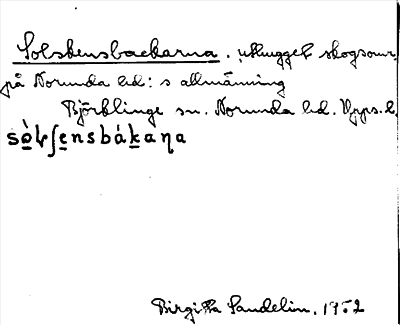 Solskensbackarna. uthugget skogsomr.
på Norunda hd:s allmänning
Björklinge sn. Norunda hd. Upps. l.
Birgitta Sandelin. 1952